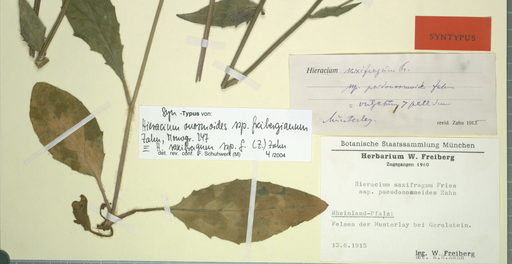 SYNTYPUS
Hieracium saxifragum Fr.
Münterley. revid. Zahn 191
Syn -Typus von:
Hieracium onosmoides ssp. freibergianum
Zahn,
H. saxifragum ssp. f. (Z.) Zahn
det. rev. conf. G. Schuhwerk (M) 4/2004
Botanische Staatssammlung München
Herbarium W. Freiberg
Zugegangen 1960
Hieracium saxifragum Fries
ssp. pseudonosmoides Zahn
Rheinland-Pfalz:
Felsen der Munterley bei Gerolstein.
13.6.1915
leg. W. Freiberg